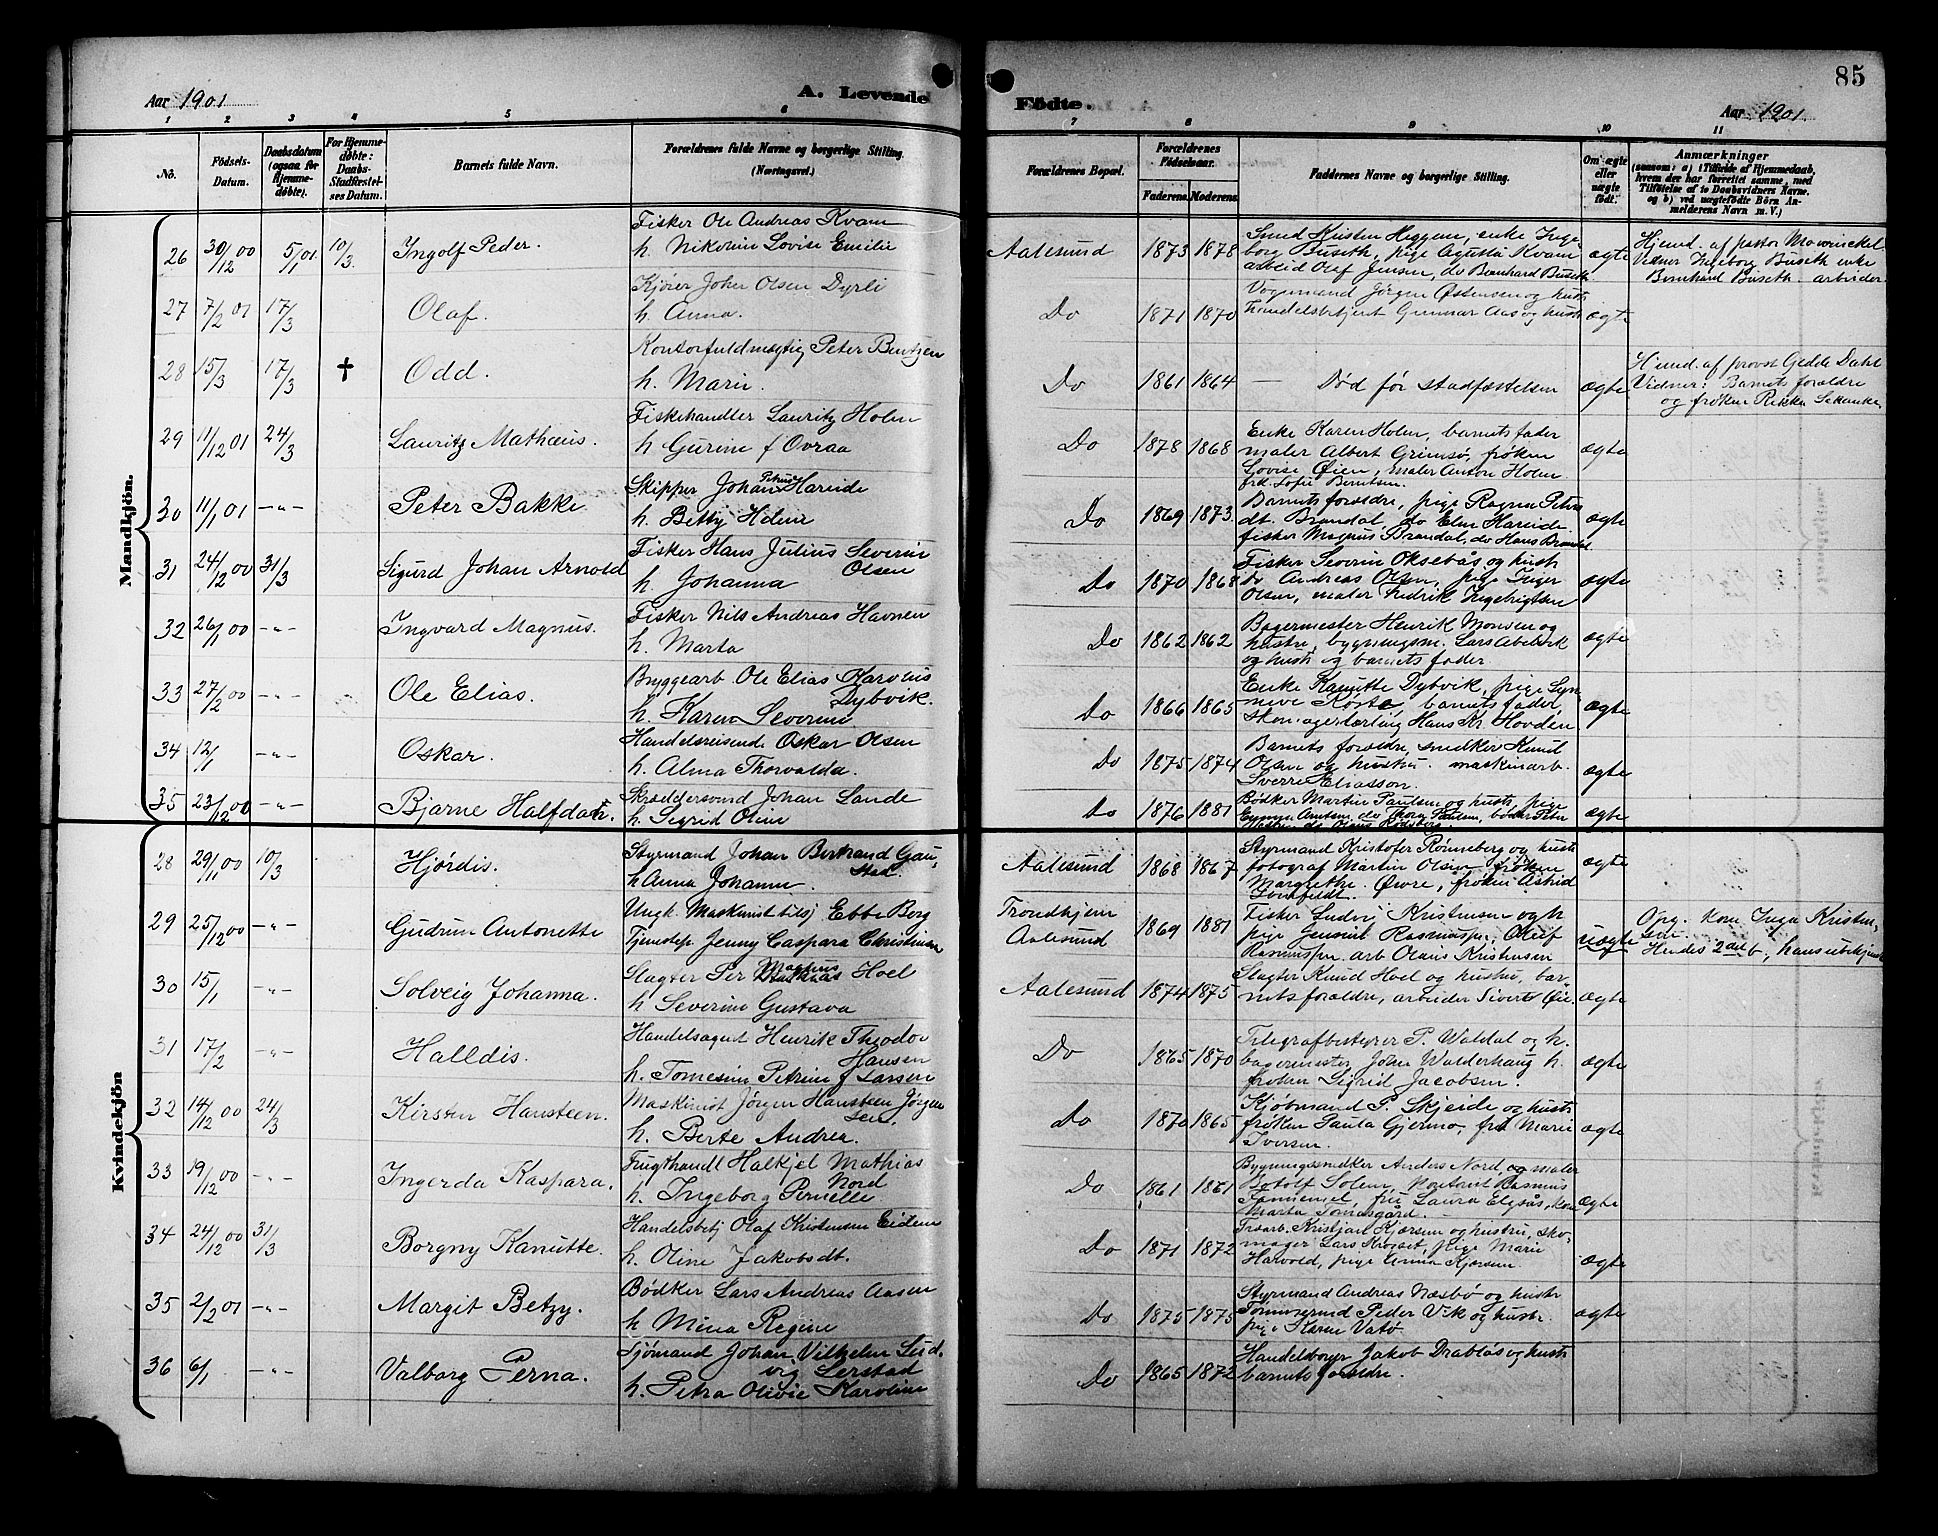 85
Aar 1901
A. Levende Födte.
Aar 1901
1 2 3 4 5 6 7 8 9 10 11
No.
Födsels-Datum.
Daabsdatum (ogsaa for Hjemmedöbte).
For Hjemmedøbte: Daabs-Stadfæstelses Datum.
Barnets fulde Navn.
Forældrenes fulde Navne og borgerlige Stilling. (Næringsvei.)
Forældrenes Bopæl.
Forældrenes Fødselsaar.
Faderens. Moderens.
Faddernes Navne og borgerlige Stilling.
Om ægte eller uægte født.
Anmærkninger
(saasom: a) i Tilfælde af Hjemmedaab, hvem der har forrettet samme, med Tilföielse af to Daabsvidners Navne, og b) ved uægtefödte Börn Anmelderens Navn m. V.)
Mandkjön.
26 30/12 00 5/1 01 10/3 Ingolf Peder.
Fisker Ole Andreas Kvam
h. Nikoline Lovise Emilie
Aalesund 1873 1878
Smed Kristen Heggem, enke Inge-
borg Buseth, pige Agusta Kvam
arbeid Olaf Jensen, do Bernhard Buseth
ægte
Hjemd. af pastor Mowinckel
Vidner Ingeborg Buseth enke
Bernhard Buseth arbeider.
27 7/2 01 17/3 Olaf.
Kjører Johan Olsen Dyrli
h. Anna.
Do 1871 1870
Vognmand Jørgen Østensen og hust
Handelsbetjent Gunnar Aas og hust
ægte
28 15/3 17/3 † Odd.
Kontorfuldmægtig Peter Bentzen
h. Marie.
Do 1861 1864
— Død før stadfæstelsen
ægte
Hjemd. af provst Gedde Dahl
Vidner: Barnets forældre
og frøken Rikke
29 11/12 01 24/3 Lauritz Mathæus.
Fiskehandler Lauritz Holm
h Gurine f Ovraa
Do 1878 1868
Enke Karen Holm, barnets fader
maler Albert Grimsø, frøken
Lovise Øien, maler Anton Holm
frk Sofie Berntsen.
ægte
30 11/1 01 -"- Peter Bakke
Skipper Johan Petrus Hareide
h. Betty Helene
Do 1869 1873.
Barnets forældre, pige Ragna Peters
dt. Brandal, do Elen Hareide
fisker Magnus Brandal, do Hans Brandal
ægte
31 24/12 00 31/3 Sigurd Johan Arnold
Fisker Hans Julius Severin
Olsen
h. Johanna
Do 1870 1868
Fisker Severin Oksebås og hustr
do Andreas Olsen, pige Inger
Olsen, maler Fredrik Ingebrigtsen
ægte
32 26/1 00 -"- Ingvard Magnus.
Fisker Nils Andreas Havnen
h. Marta
Do 1862 1862
Bagermester Henrik Monsen og
hustru, bygningsm. Lars Abelseth
og hust og barnets fader
ægte
33 27/2 00 -"- Ole Elias.
Bryggearb Ole Elias Karolius
Dybvik.
h. Karen Severine
Do 1866 1865
Enke Kanutte Dybvik, pige Syn-
neve Røste, barnets fader,
skomagerlærling Hans Kr Hovden
ægte
34 12/1 -"- Oskar.
Handelsreisende Oskar Olsen
h. Alma Thorvalda.
Do 1875 1874
Barnets forældre, snedker Knud
Olsen og hustru. maskinarb.
Sverre Eliasson.
ægte
35 23/12 00 -"- Bjarne Halfdan.
Skræddersvend Johan Sande
h. Sigrid Oline
Do 1876 1881
Bødker Martin Paulsen og hust, pige
Emma Arntsen, do Thora Paulsen, bødker Peter
ægte
Kvindekjön
28 29/1 00 10/3 Hjørdis.
Styrmand Johan Bertrand Gau-
stad.
h Anna Johanne.
Aalesund 1868 1867
Styrmand Kristofer Rønneberg og hust
fotograf Martin Olsen, frøken
Margrethe Øvre, frøken Astrid
ægte
29 25/12 00 -"- Gudrun Antonette
Ungk. Maskinist tilsj Ebbe Berg
Tjenestep Jenny Caspara Christiansen
Trondhjem
Aalesund
1869 1881
Fisker Ludvi Kristensen og h
pige Jensine Rasmussen, Oluf
Rasmussen arb Olaus Kristensen
uægte
Opg. kone Inga Kristen-
sen.
Hendes 2det b, hans ubekjendt
30 15/1 -"- Solveig Johanna.
Slagter Per Magnus Hoel
h Severine Gustava
Aalesund 1874 1875
Slagter Knud Hoel og hustru, bar-
nets forældre, arbeider Sivert Øie
ægte
31 17/2 -"- Halldis.
Handelsagent Henrik Theodor
Hansen
h. Tomesine Petrine f Larsen
Do 1865 1870
Telegrafbestyrer P. Waldal og h.
bagermester Johan Walderhaug h.
frøken Sigrid Jacobsen.
ægte
32 14/12 00 24/3 Kirsten Hansteen.
Maskinist Jørgen Hansteen Jørgen
sen.
h. Berte Andrea.
Do 1870 1865
Kjøbmand P. Skjeide og hust
frøken Paula Gjermo, frk Marie
Iversen.
ægte
33 19/12 00 -"- Ingerda Kaspara.
Frugthandl Halkjel Mathias
Nord
h. Ingeborg Pernelle
Do 1861 1861
Bygningssnedker Anders Nord, og maler
Botolf Solem, kontorist Rasmus
fru Laura Elgsås, kone
Marta Tomasgård.
ægte
34 24/12 00 31/3 Borgny Kanutte.
Handelsbetj Olaf Kristensen Eidem
h. Oline Jakobsdt.
Do 1871 1872
Træarb. Kristjan Kjærsem og hustru, sko-
mager Lars Krogset, pige Marie
Harvold, pige Anna Kjærsem
ægte
35 2/2 01 -"- Margit Betzy.
Bødker Lars Andreas Aasen
h Mina Regine
Do 1875 1875
Styrmand Andreas Næsbø og hustr
Tømmermd Peder Vik og hustr.
pige Karen Vatø
ægte
36 6/1 -"- Valborg Perna.
Sjømand Johan Vilhelm Lud-
vig Lerstad
h. Petra Olivie Karoline
Do 1865 1872
Handelsborger Jakob Drabløs og hust
barnets forældre.